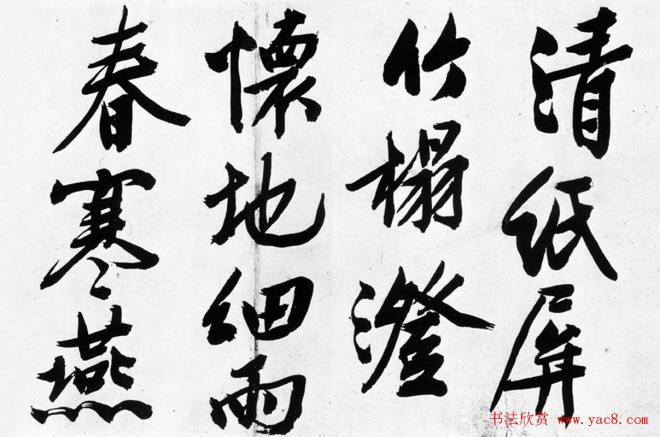 清纸屏
竹榻澄
懷地细雨
春寒燕
书法欣赏 www.yac8.com